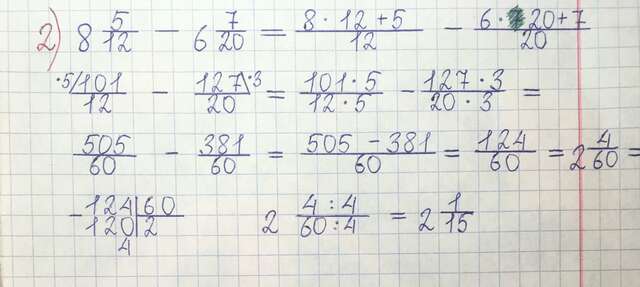 2) 8 5/12 - 6 7/20 = (8 · 12 + 5)/12 - (6 · 20 + 7)/20
·5/ 101/12 - 127/20 \·3 = (101 · 5)/(12 · 5) - (127 · 3)/(20 · 3) =
505/60 - 381/60 = (505 - 381)/60 = 124/60 = 2 4/60 =
- 124 | 60
120 | 2
4
2 (4 : 4)/(60 : 4) = 2 1/15